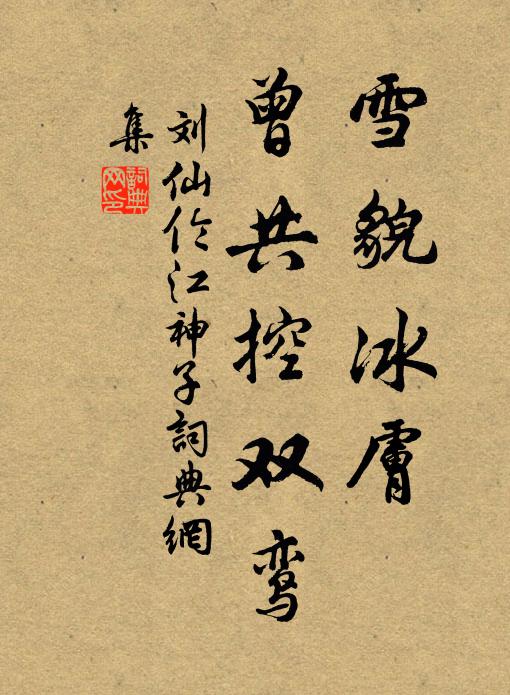 雪貌冰膚
曾共控双鸾
刘仙伦江神子詞典網
集
詞典
网印